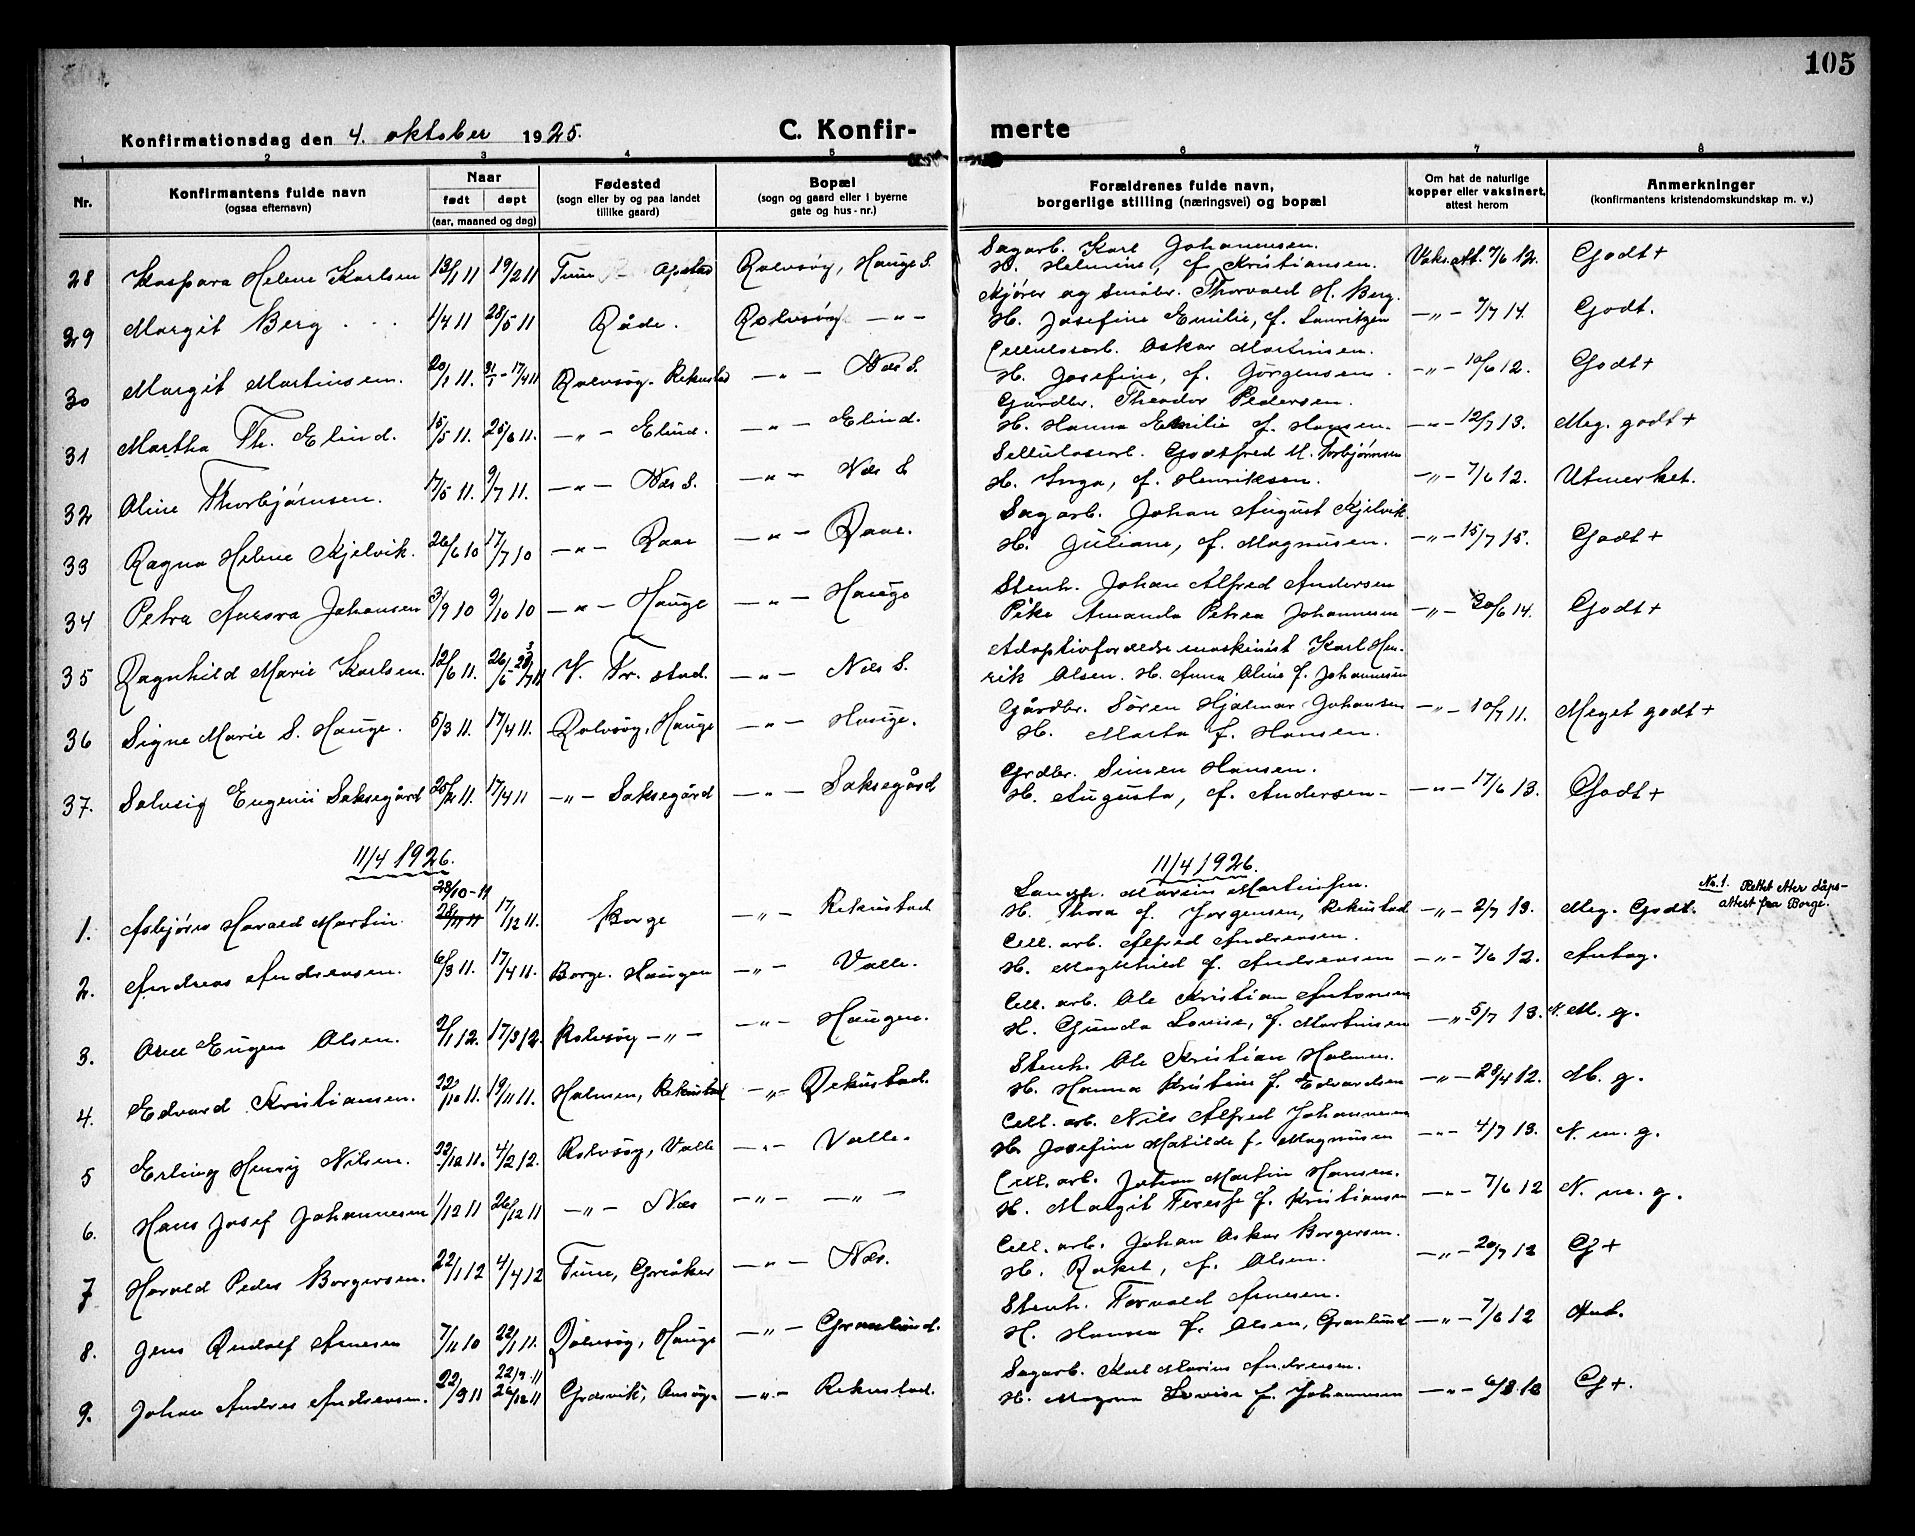 105
Konfirmationsdag den 4. oktober 1925.
C. Konfir-
merte
1 2 3 4 5 6 7 8
Nr.
Konfirmantens fulde navn
(ogsaa efternavn)
Naar
født døpt
(aar, maaned og dag)
Fødested
(sogn eller by og paa landet
tillike gaard)
Bopæl
(sogn og gaard eller i byerne
gate og hus-nr.)
Forældrenes fulde navn,
borgerlige stilling (næringsvei) og bopæl
Om hat de naturlige
kopper eller vaksinert,
attest herom
Anmerkninger
(konfirmantens kristendomskundskap m. v.)
28 Kaspara Helene Karlsen 13/1 11 19/2 11 Tune Opstad Rolvsøy, Hauge S. Sagarb. Karl Johannesen.
H. Helmine, f. Kristiansen. Vaks.att. 7/6 12. Godt +
29 Margit Berg 1/4 11 28/5 11 Råde. Rolvsøy -"- Kjører og småbr. Thorvald H. Berg.
H. Josefine Emilie, f. Lauritzen -"- 7/7 14. Godt.
30 Margit Martinsen. 20/1 11. 17/4 11 Rolvsøy. Rekustad -"- Næs S. Cellulosarb. Oskar Martinsen.
H. Josefine, f. Jørgensen. -"- 10/6 12. Godt +
31 Martha Th. Elind. 15/5 11. 25/6 11. -"- Elind. -"- Elind. Gårdbr. Theodor Pedersen.
H. Hanna Emilie f. Hansen. -"- 12/7 13. Meg. godt +
32 Oline Thorbjørnsen. 17/5 11. 9/7 11. -"- Næs S. -"- Næs S Sellulosearb. Godtfred M. Torbjørnsen
H. Inga, f. Henriksen. -"- 7/6 12. Utmerket.
33 Ragna Helene Kjelvik. 26/6 10 17/7 10 -"- Raae -"- Raae. Sagarb. Johan August Kjelvik.
H. Juliane, f. Magnusen. -"- 15/7 15. Godt +
34 Petra Aurora Johansen 3/9 10 9/10 10 -"- Hauge -"- Hauge Stenh. Johan Alfred Andersen
Pike Amanda Petrea Johannesen -"- 20/6 14. Godt +
35 Ragnhild Marie Karlsen. 12/6 11. V. Fr.stad. -"- Næs S. Adoptivforældre maskinist Karl Hen-
rik Olsen. H. Anna Oline f. Johannesen
36 Signe Marie S. Hauge. 5/3 11. 17/4 11. Rolvsøy, Hauge -"- Hauge. Gårdbr. Søren Hjalmar Johansen
H. Marta f. Hansen. -"- 10/7 11. Meget godt +
37. Solveig Eugenie Saksegård 25/2 11. 17/4 11 -"- Saksegård -"- Saksegård Grdbr. Simen Hansen.
H. Augusta, f. Andersen - -"- 17/6 13. Godt +
11/4 1926. 11/4 1926.
1. Asbjørn Harald Martin 28/10-11 17/12 11. Borge -"- Rekustad Marius Martinsen.
H. Thora f. Jørgensen, Rekustad -"- 2/7 13. Meg. Godt. No. 1. Rettet etter dåps-
attest fra Borge.
2. Andreas Andreassen. 6/3 11. 17/4 11. Borge. Haugen -"- Valle. Cell. arb. Alfred Andreasen.
H. Magthild f. Andreasen -"- 7/6 12. Antag.
3. Eugen Olsen. 2/1 12. 17/3 12. Rolvsøy -"- -"- Haugen. Cell. arb. Ole Kristian Antonsen
H. Gunda Lovise, f. Martinsen -"- 5/7 13. N. M. g.
4. Edvard Kristiansen. 22/10 11. 19/11 11. Holmen, Rekustad -"- Rekustad. Stenh. Ole Kristian Holmen.
H. Hanna Kristine f. Edvardsen -"- 28/4 12. M. g.
5 Erling Henry Nilsen. 22/12 11. 4/2 12. Rolvsøy, Valle -"- Valle. Cell. arb. Nils Alfred Johannesen
H. Josefine Matilde f. Magnusen -"- 4/7 13. N. m. g.
6. Hans Josef Johannesen 1/12 11 26/12 11 -"- Næs -"- -"- Cell. arb. Johan Martin Hansen.
H. Margit Terese f. Kristiansen -"- 7/6 12 N. m. g.
7 Harald Peder Borgersen. 22/1 12 4/4 12 Tune, Greåker -"- Næs. Cell. arb. Johan Oskar Borgersen.
H. Rakel, f. Olsen. -"- 20/7 12 G +
8. Jens Rudolf Arnesen 7/11 10 22/1 11. Rolvsøy, Hauge -"- Granlund. Stenh. Torvald Arnesen.
H. Hanna f. Olsen, Granlund -"- 7/6 12 Ant.
9. Johan Andres Andreasen. 22/9 11 26/12 11 Gresvik, Onsøy -"- Rekustad. Sagarb. Karl Marius Andreasen.
H. Magna Lovise f. Johannesen -"- G +.